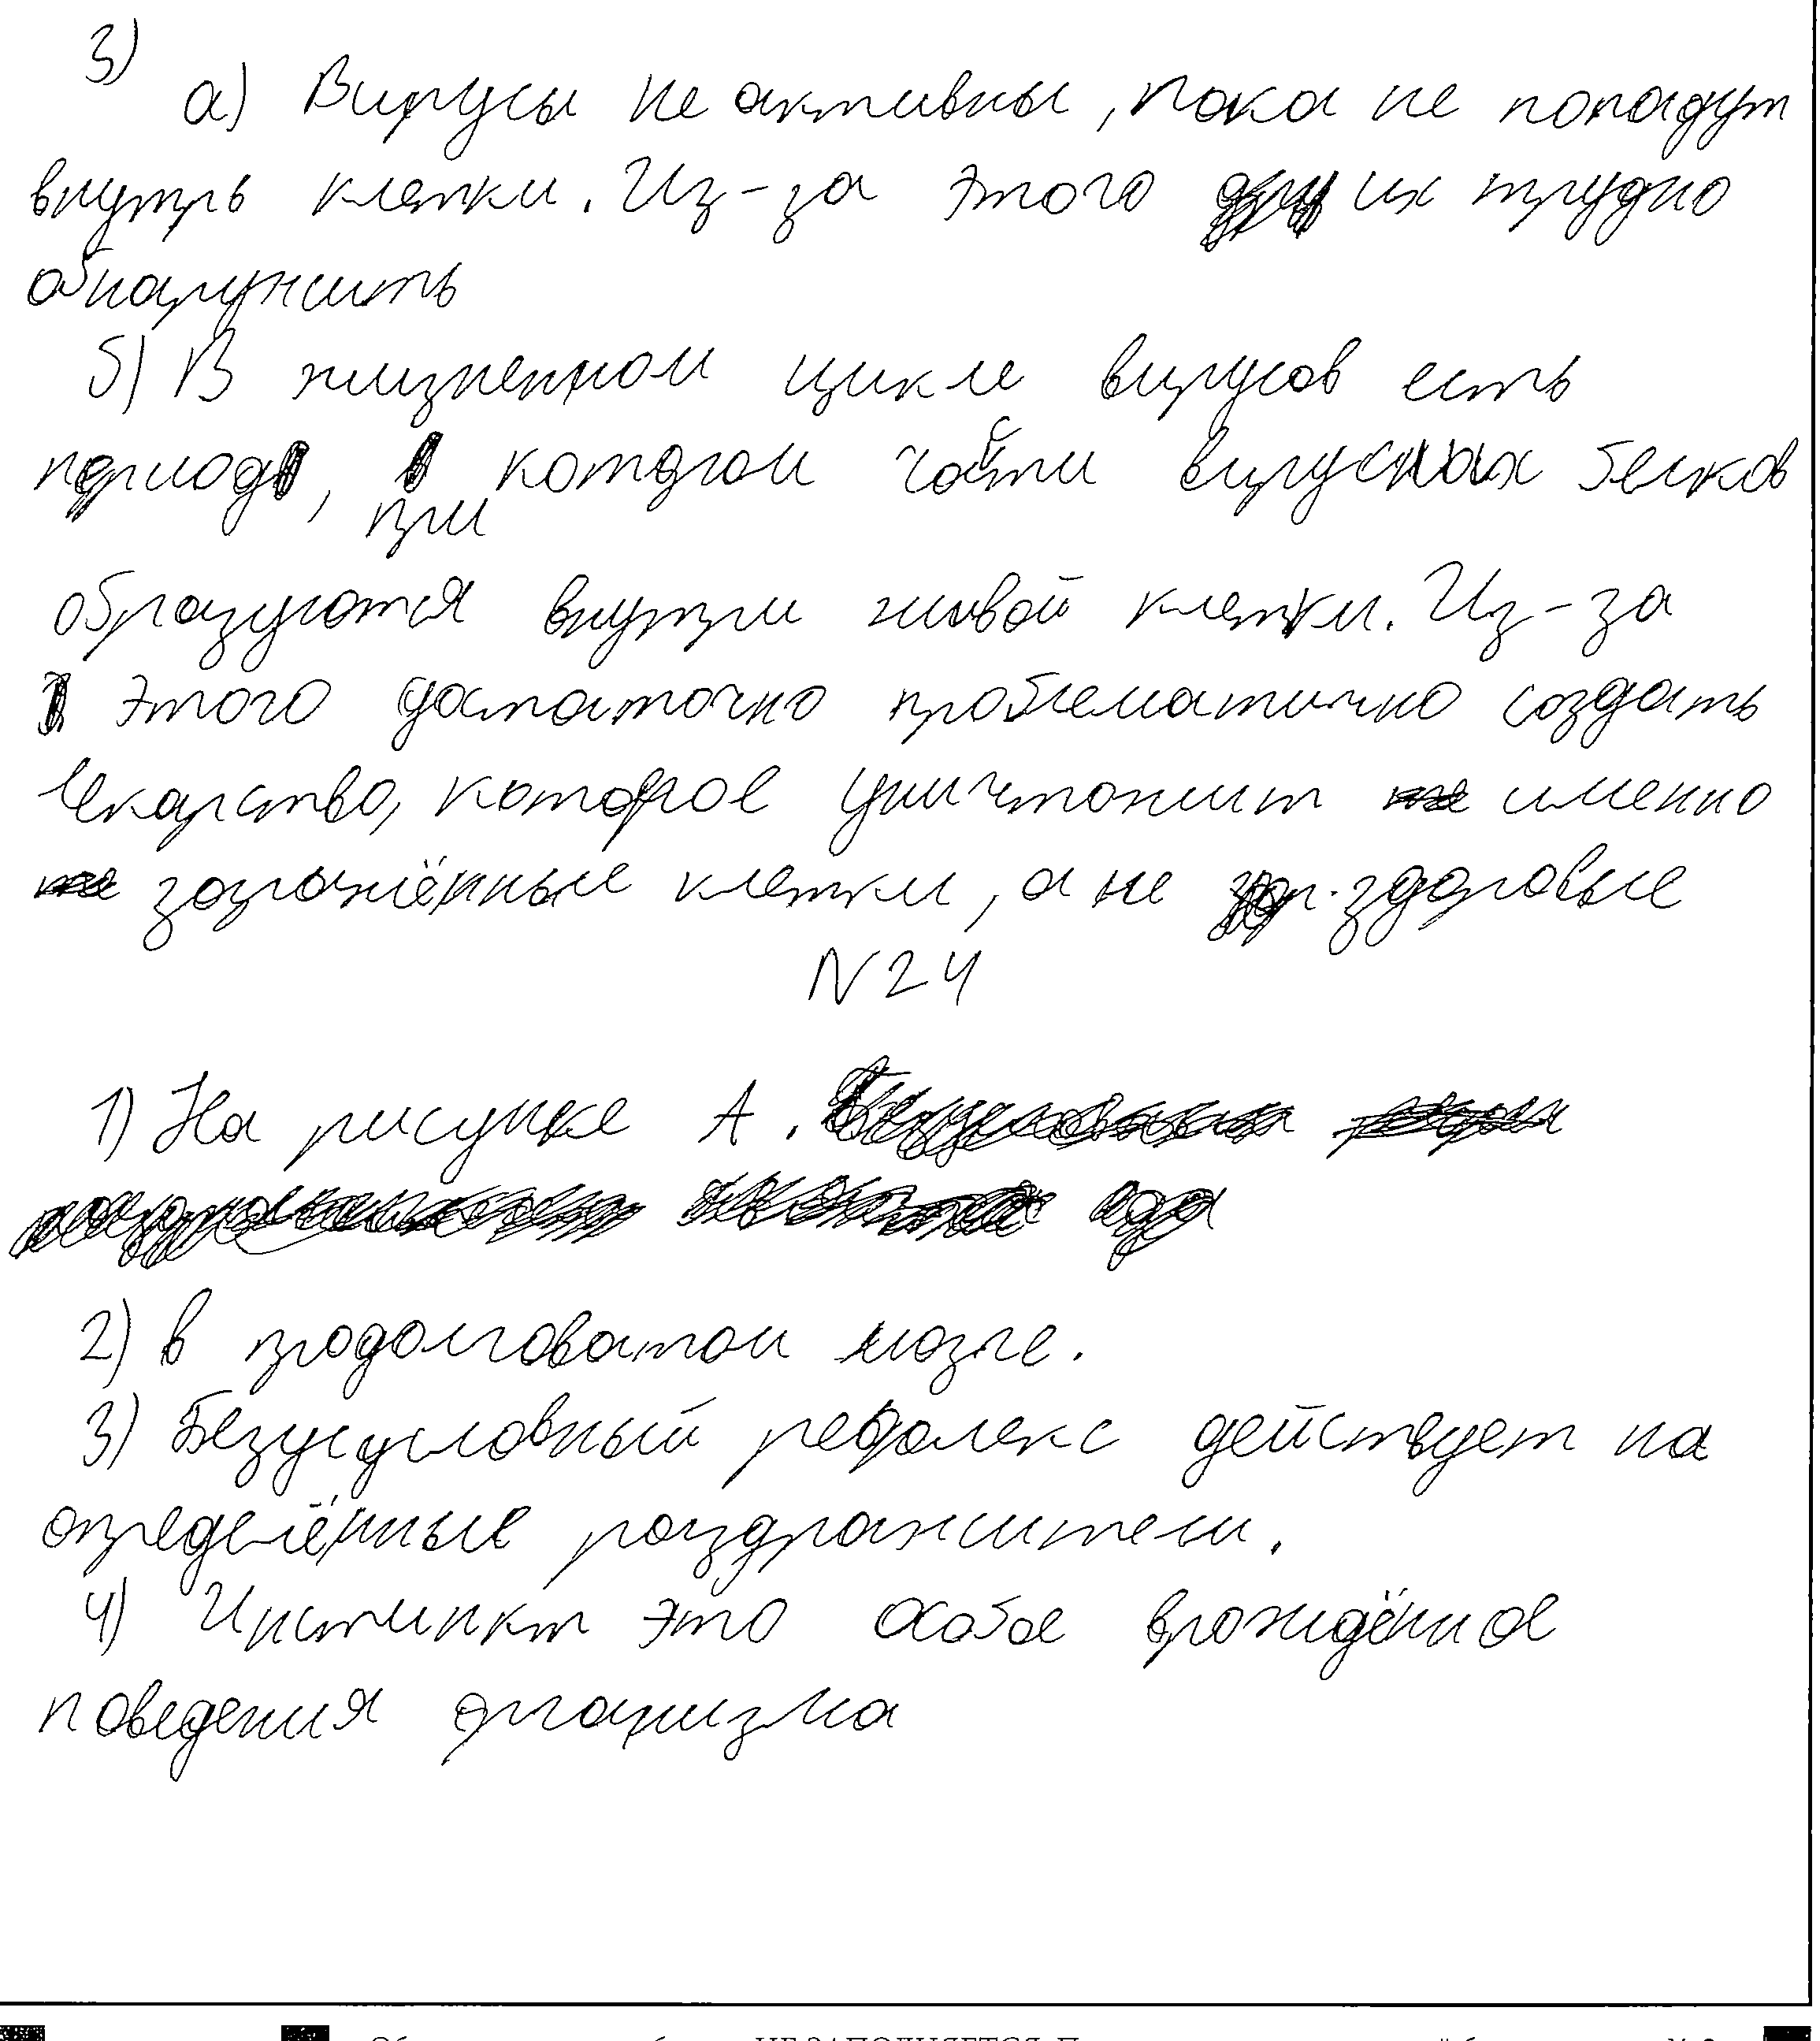 3)
а) Вирусы не активны, пока не попадут
внутрь клетки. Из-за этого их трудно
обнаружить
б) В жизненном цикле вирусов есть
период, при котором части вирусных белков
образуются внутри живой клетки. Из-за
этого достаточно проблематично создать
лекарство, которое уничтожит именно
заражённые клетки, а не здоровые
N24
1) На рисунке А.
2) в продолговатом мозге.
3) Безусусловный рефлекс действует на
определённые раздражители.
4) Инстинкт это особое врождённое
поведения организма